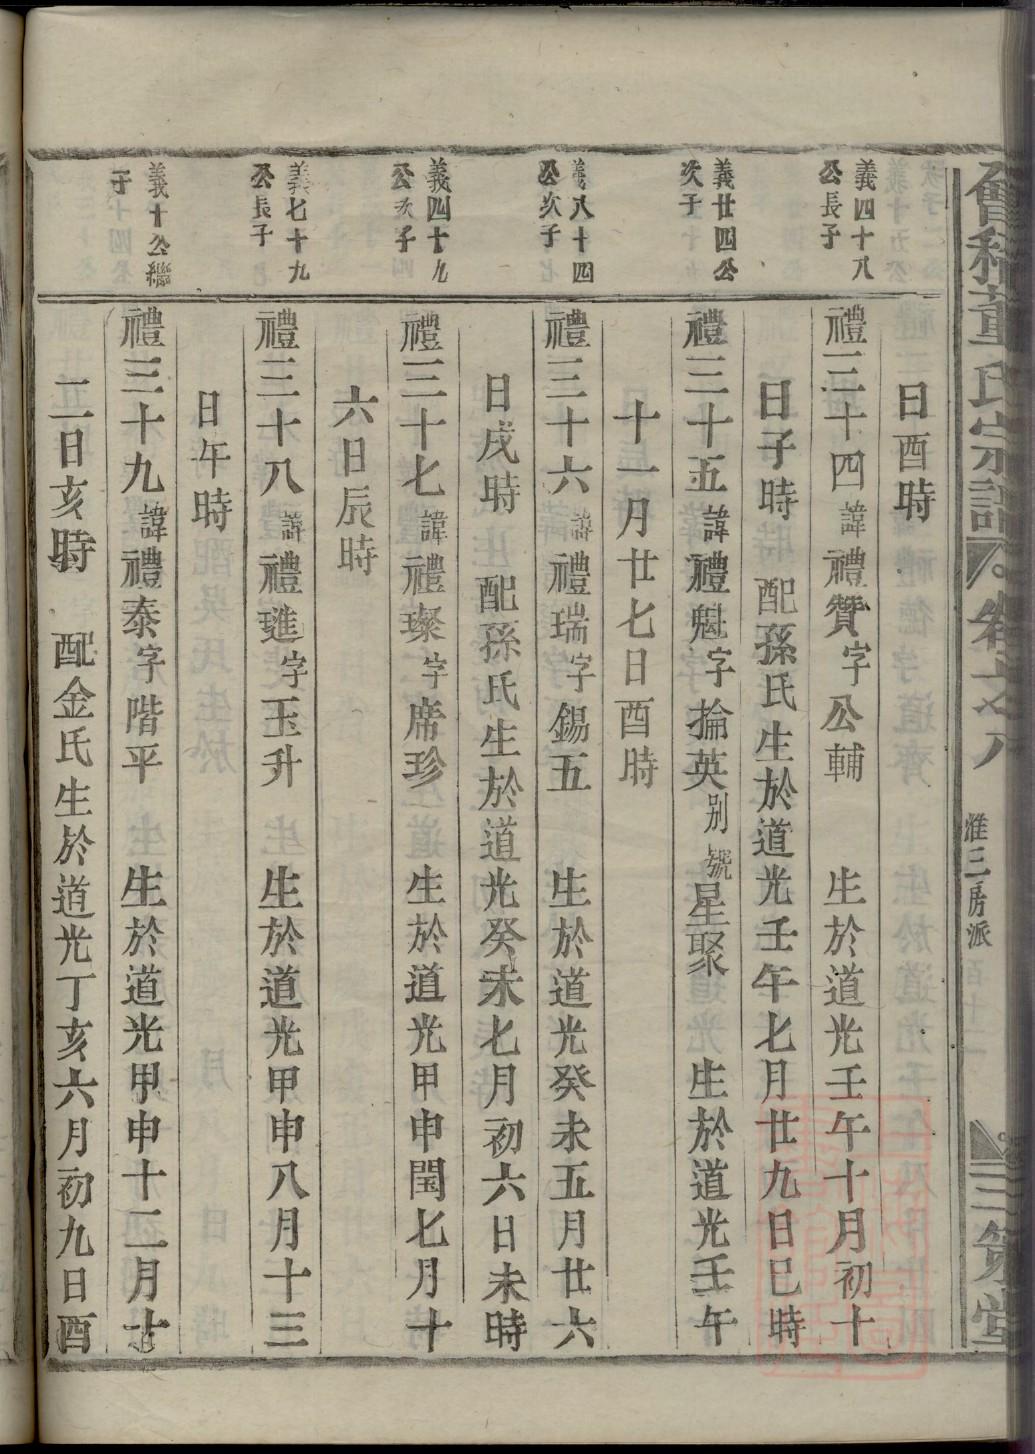 會稽董氏宗譜
雅三房派
三策堂
日酉時
義四十八
公長子
禮三十四諱禮贊字公輔 生於道光壬午十月初十
日子時 配孫氏生於道光壬午七月廿九日巳時
義廿四公
次子
禮三十五諱禮魁字掄英別號星聚 生於道光壬午
十一月廿七日酉時
義八十四
公次子
禮三十六諱禮瑞字錫五 生於道光癸未五月廿六
日戌時 配孫氏生於道光癸未七月初六日未時
義四十九
公次子
禮三十七諱禮璨字席珍 生於道光甲申閏七月十
六日辰時
義七十九
公長子
禮三十八諱禮璡字玉升 生於道光甲申八月十三
日午時
義十公繼
子
禮三十九諱禮泰字階平 生於道光甲申十二月廿
二日亥時 配金氏生於道光丁亥六月初九日酉